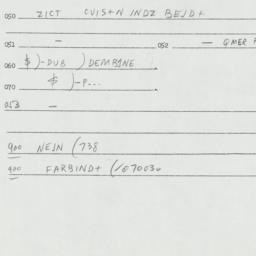 050 ZICT CVIS+N INDZ BEJD+
051 — 052 — QMER
060 $)-DUB )DEMBINE
070 $ )-P...
053 —
900 NEJN (738
900 FARBIND+ (/070030